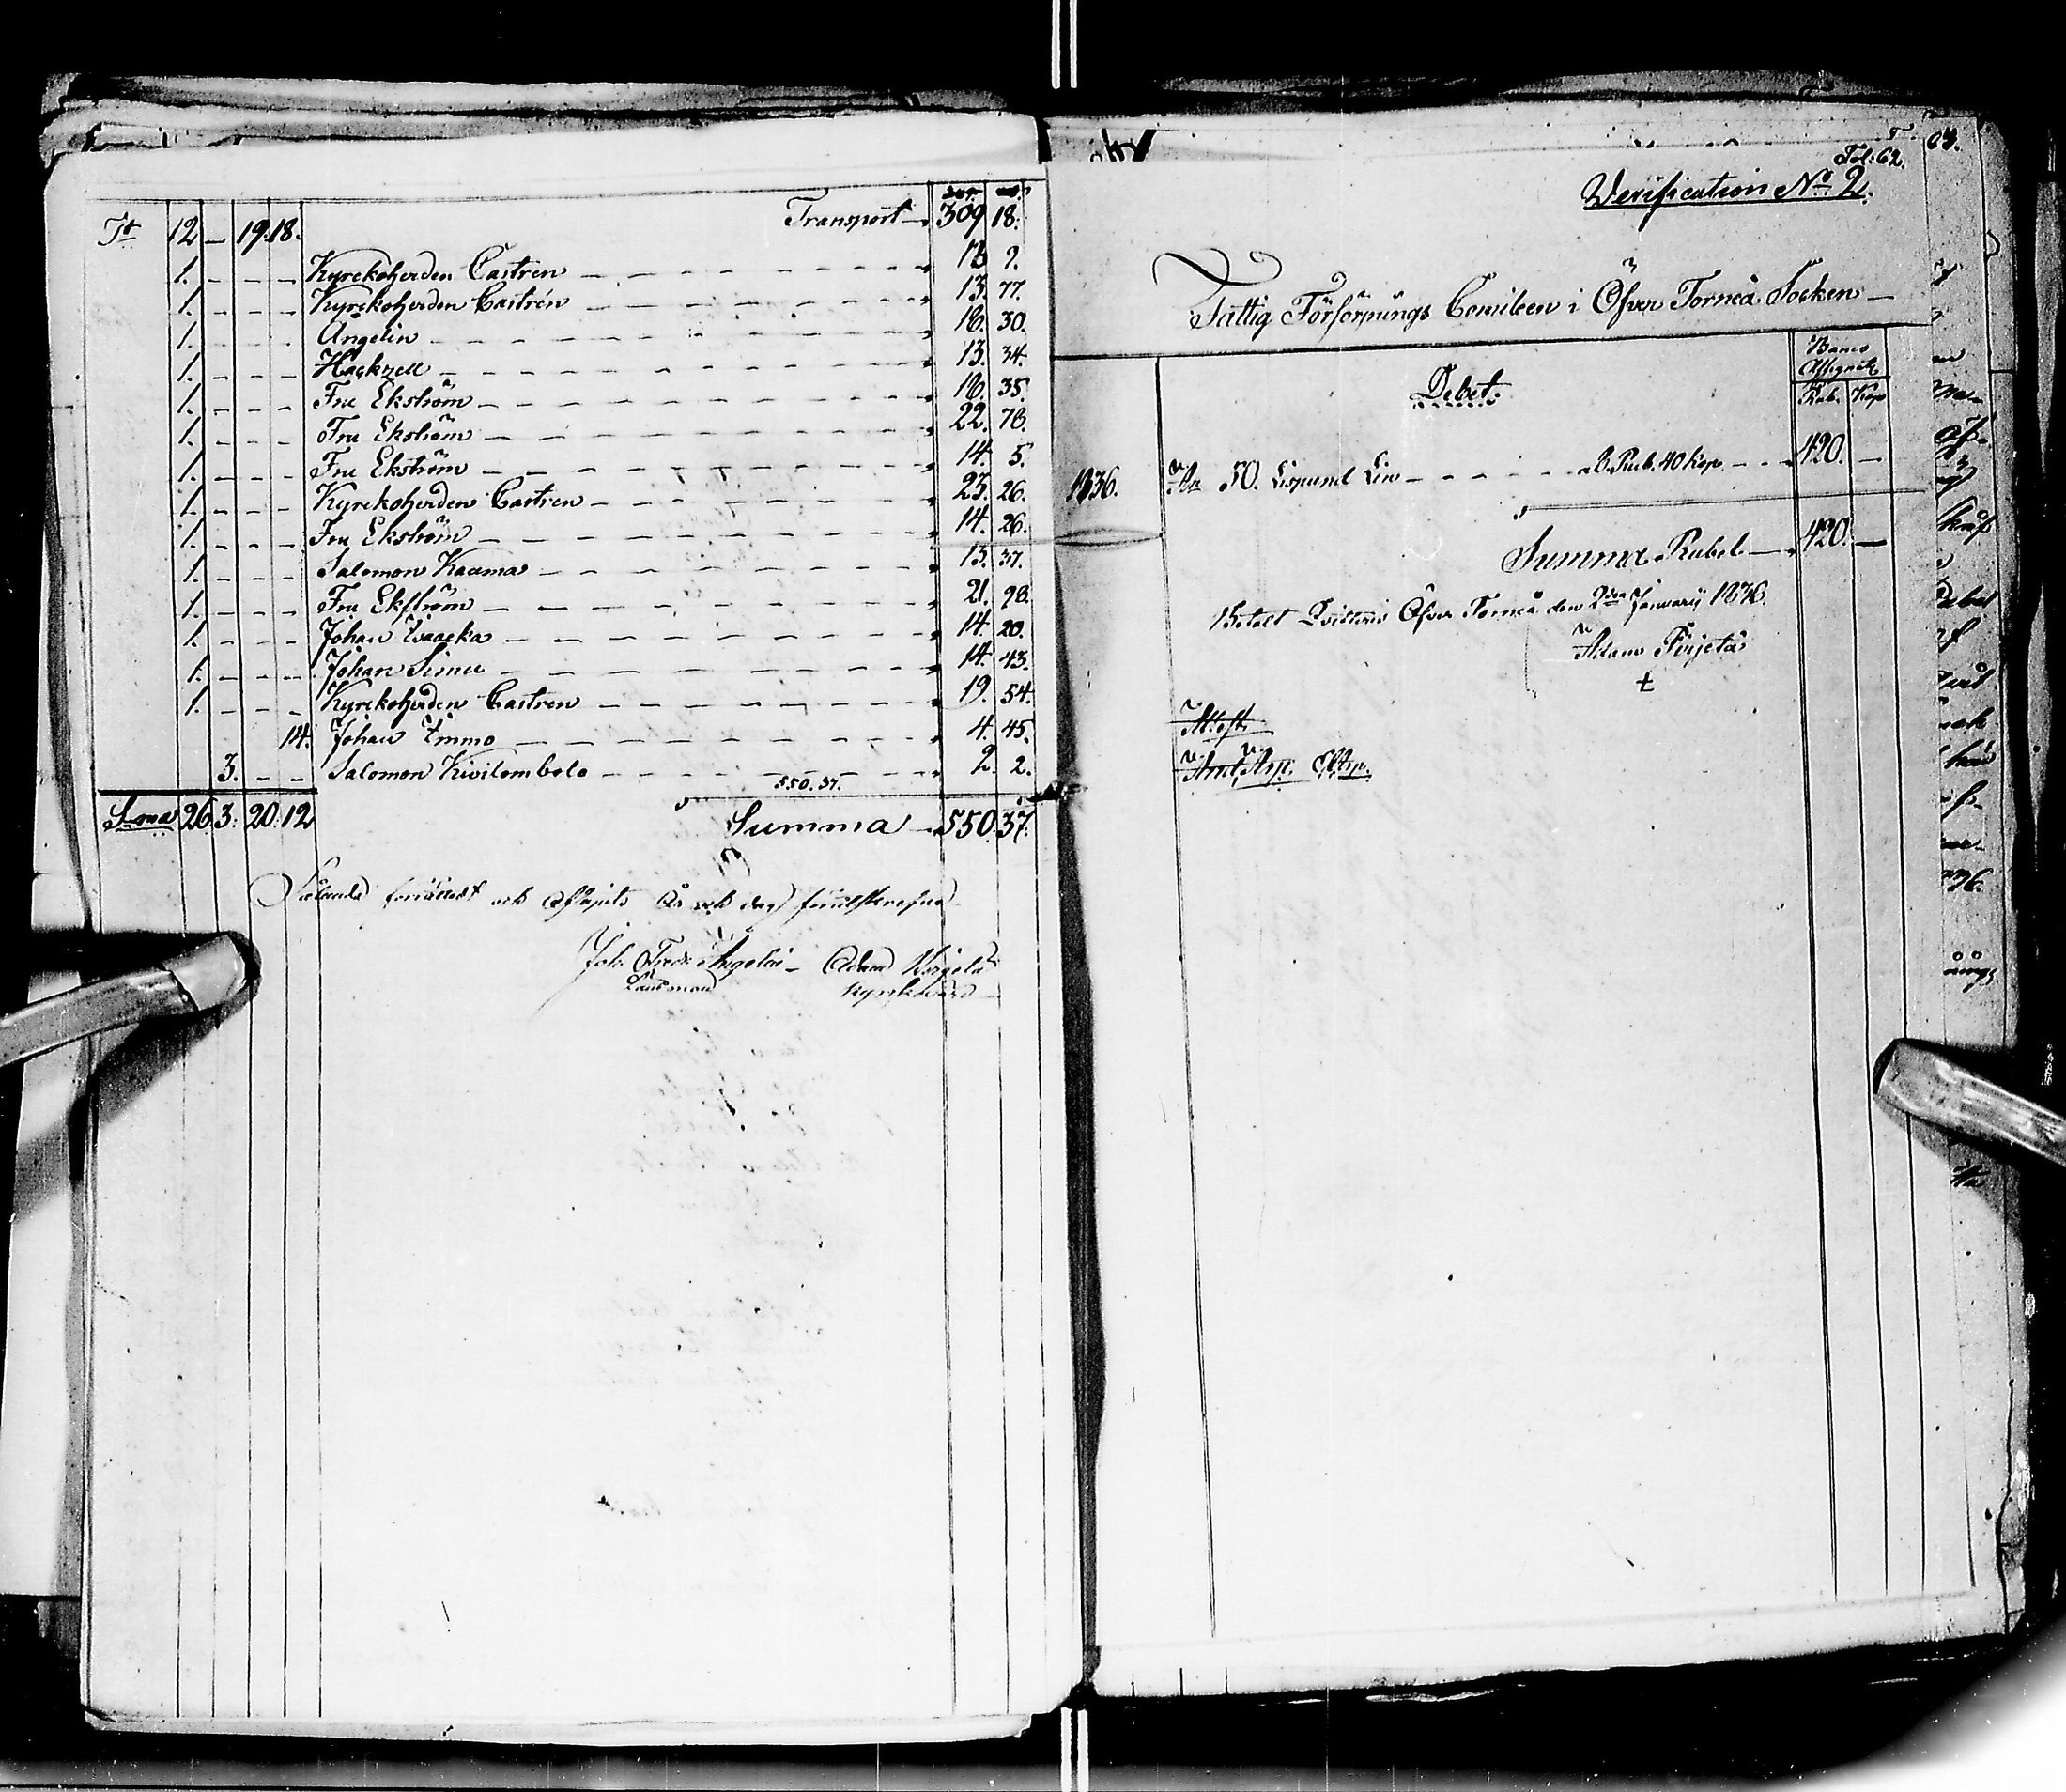 Tt 12 – 19. 18. Transport 309 18.
1. Kyrckoherden Castren 9.
1. Kyrckoherden Castrén 13. 77.
1. Angelin 16. 30.
1. Hackzell 13. 34.
1. Fru Ekström 16. 35.
1. Fru Ekström 22. 78.
1. Fru Ekström 14. 5.
1. Kyrckoherden Castren 23. 26.
1. Fru Ekström 14. 26.
1. Salomon Kauma 13. 37.
1. Fru Ekström 21. 98.
1. Johan 14. 20.
1. Johan Simu 14. 43.
1. Kyrckoherden Castren 19. 54.
14. Johan Immo 4. 45.
3. Salomon Kivilombolo 2. 2.
550. 37.
S:ma 26 3. 20. 12 Summa 550. 37.
Sålunda förrättadt och afslutits År och dag
Joh. Fredr. Angelin Adam
Länsman Kyrckovärd
Fol: 62.
Verification No 2.
Fattig Försörjnings Comiteen i Öfver Torneå Socken
Debet. Banco Assignat.
Rub. Kop
1836. An 50. Lispund Lin a 8. Rub. 40 Kop. 420. –
Summa Rubel 420. –
Betalt Qvitteras Öfver Torneå den 2den January 1836.
Adam
Attest.